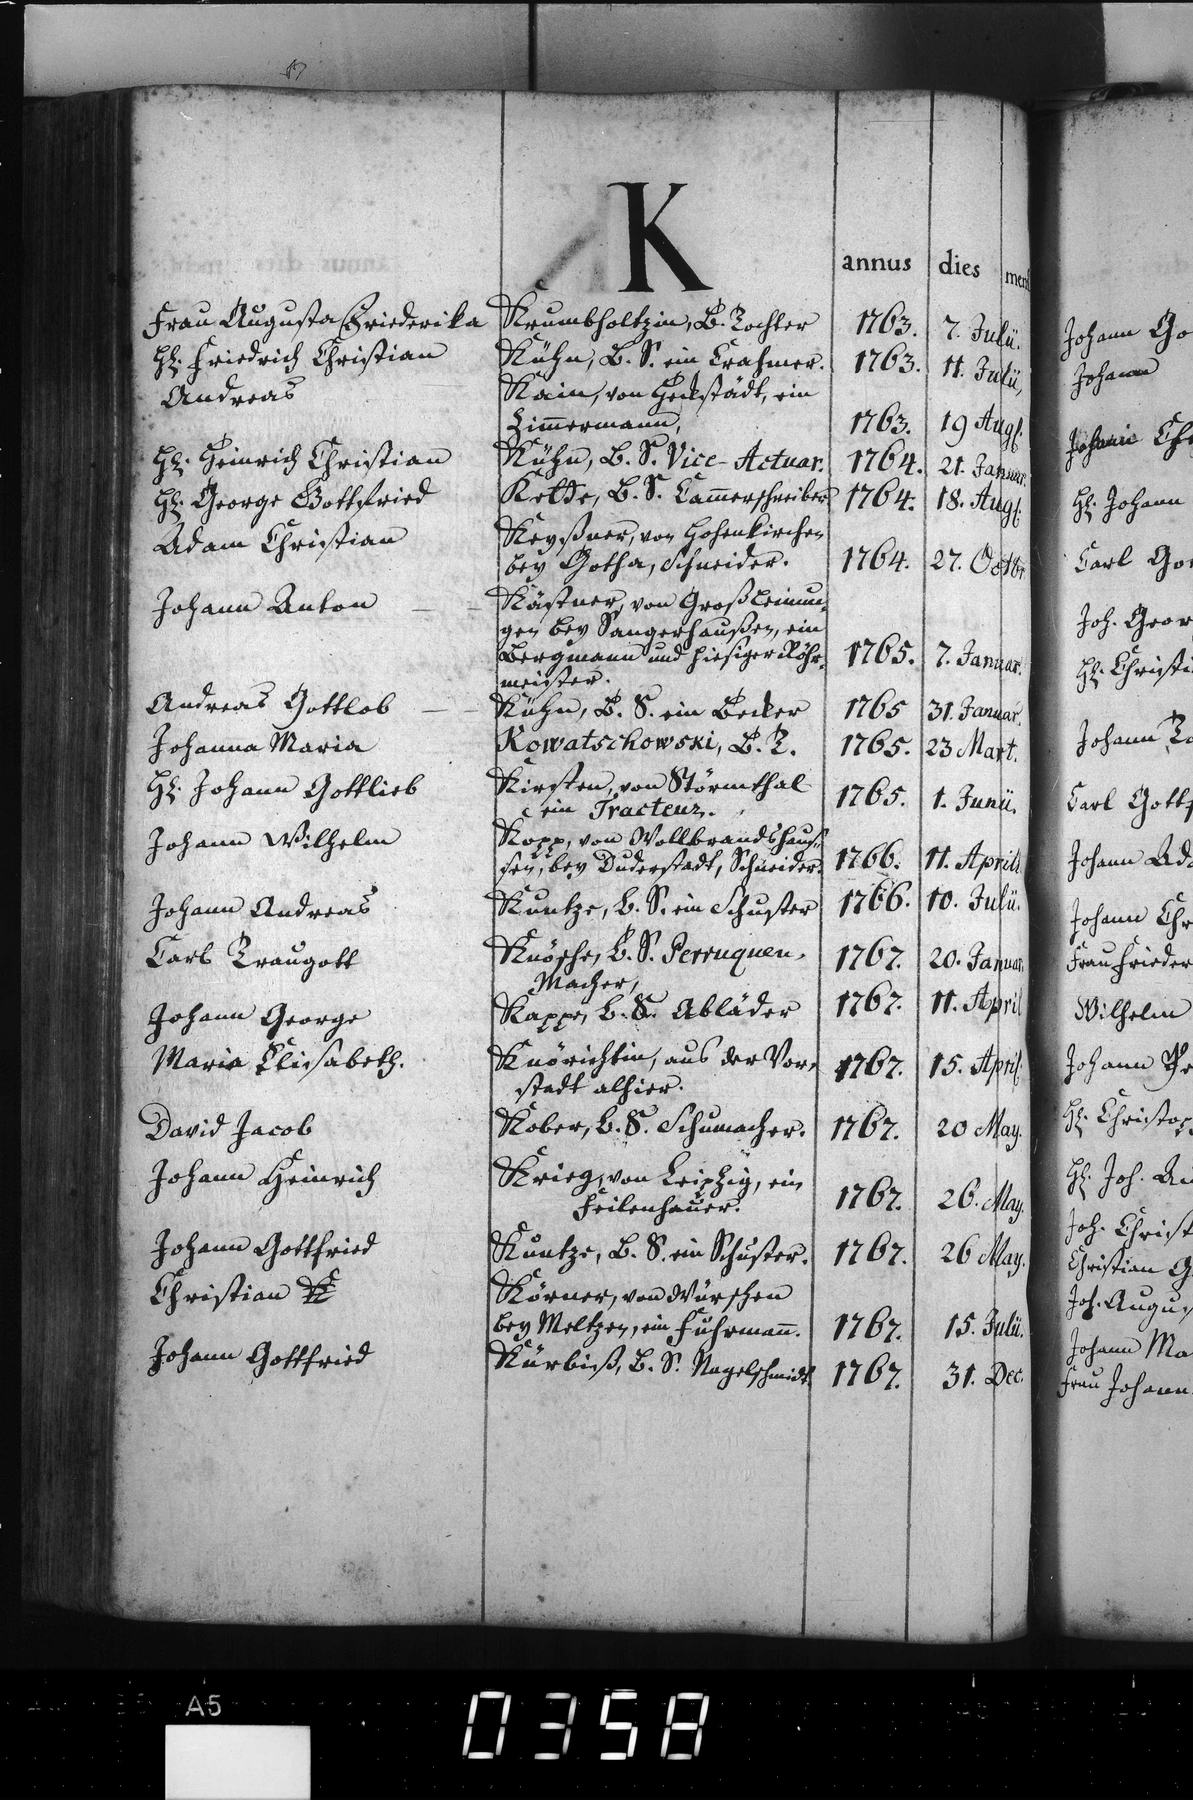 K
annus dies mens
Frau Augusta Friederika Krumbholtzin, B. Tochter 1763. 7. Julii.
Hr. Friedrich Christian Kühn, B. S. ein Crahmer. 1763. 11. Julii,
Andreas Kain, von Heckstädt, ein
Zimmermann, 1763. 19 Aug.
Hr. Heinrich Christian Kühn, B. S. Vice-Actuar. 1764. 21. Januar.
Hr. George Gottfried B. S. Cammerschreiber 1764. 18. Aug.
Adam Christian Keyßner, von Hohenkirchen
bey Gotha, Schneider. 1764. 27. Octbr.
Johann Anton Kästner, von Großleinun-
gen bey Sangerhaußen, ein
Bergmann und hiesiger Röhr-
meister. 1765. 7. Januar.
Andreas Gottlob Kühn, B. S. ein Becker 1765 31. Januar.
Johanna Maria Kowatschowski, B. T. 1765. 23 Mart.
Hr. Johann Gottlieb Kirsten, von Störmthal
ein Tracteur. 1765. 1. Junii.
Johann Wilhelm Kopp, von Wollbrandshauß-
sen, bey Duderstadt, Schneider. 1766. 11. April.
Johann Andreas Kuntze, B. S. ein Schuster 1766. 10. Julii.
Carl Traugott Knösche, B. S. Perruquen-
Macher, 1767. 20. Januar.
Johann George Kappe, B. S. Abläder 1767. 11. April
Maria Elisabeth. Knörichtin, aus der Vor-
stadt alhier. 1767. 15. April.
David Jacob Kober, B. S. Schumacher. 1767. 20 May.
Johann Heinrich Krieg, von Leipzig, ein
Feilenhauer. 1767. 26. May.
Johann Gottfried Kuntze, B. S. ein Schuster. 1767. 26 May.
Christian Körner, von Würschen
bey Meltzen, ein Fuhrmann. 1767. 15. Julii.
Johann Gottfried Kürbiß, B. S. Nagelschmidt 1767. 31. Dec.
Johann Go
Johann
Hr. Johann
Carl Go
Joh. Geor
Hr. Christi
Johann
Carl Gott
Johann Ad
Johann Chr
Frau Frieder
Wilhelm
Johann
Hr. Christop
Hr. Joh. An
Joh. Christ
Christian G
Joh. Augus
Johann Ma
Frau Johann
A5
0358